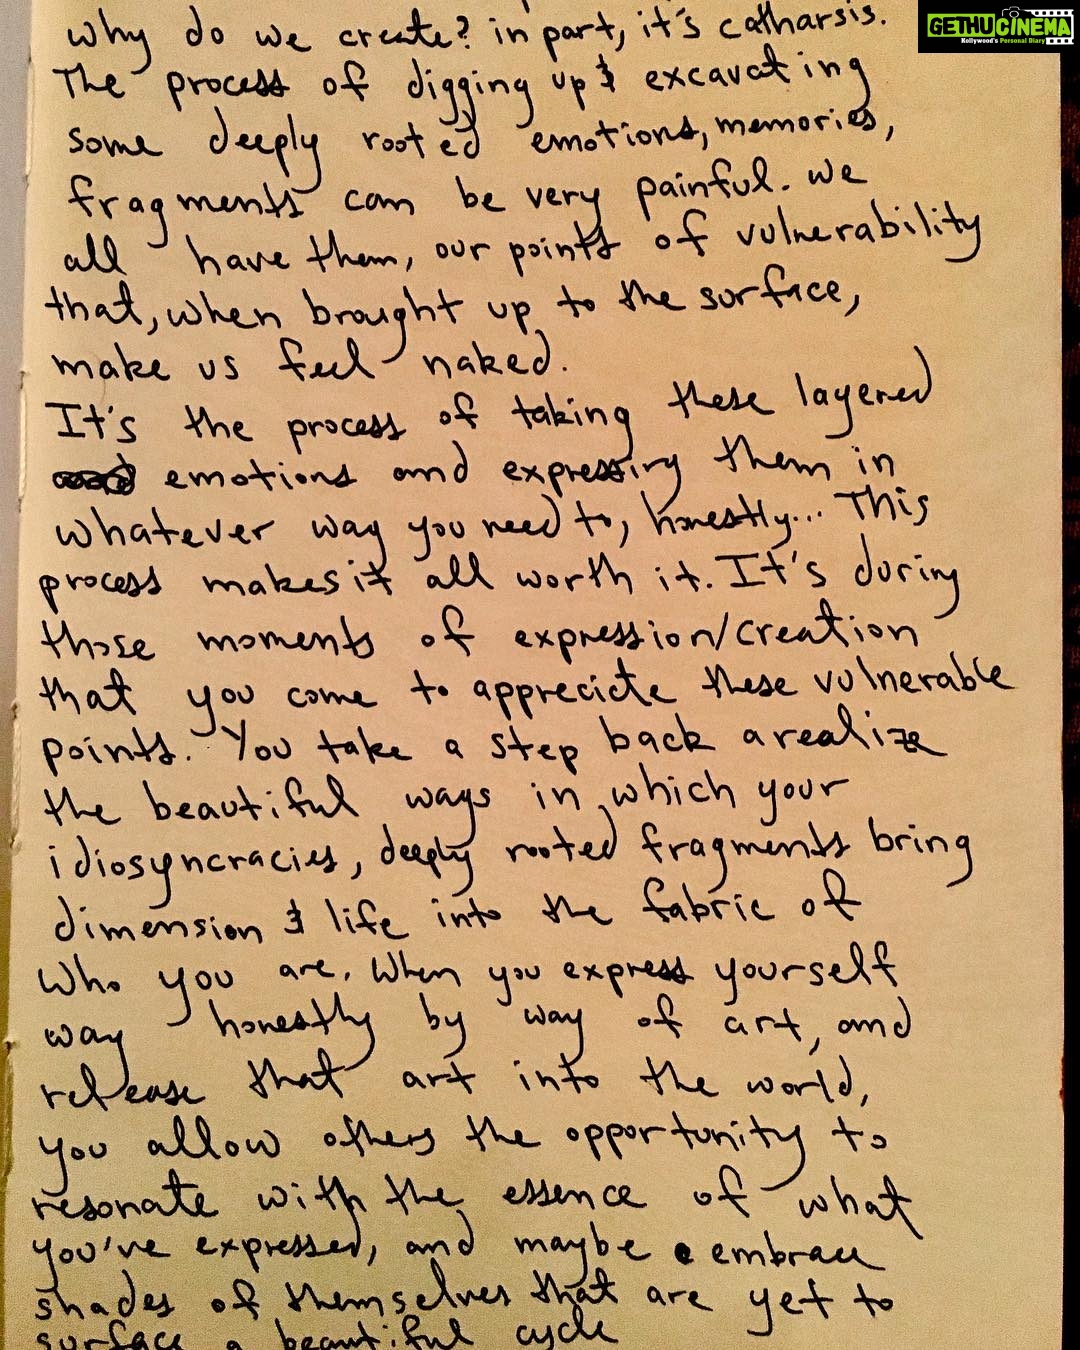 GETHUCINEMA
Kollywood's Personal Diary
why do we create? in part, it's catharsis.
The process of digging up & excavating
some deeply rooted emotions, memories,
fragments can be very painful. we
all have them, our points of vulnerability
that, when brought up to the surface,
make us feel naked.
It's the process of taking these layered
emotions and expressing them in
whatever way you need to, honestly... This
process makes it all worth it. It's during
those moments of expression/creation
that you come to appreciate these vulnerable
points. You take a step back a realize
the beautiful ways in which your
idiosyncracies, deeply rooted fragments bring
dimension & life into the fabric of
who you are. When you express yourself
way honestly by way of art, and
release that art into the world,
you allow others the opportunity to
resonate with the essence of what
you've expressed, and maybe embrace
shades of themselves that are yet to
surface a beautiful cycle